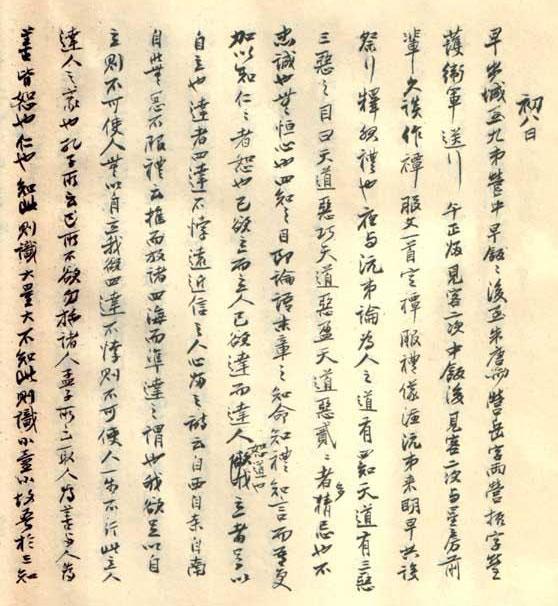 初八日
早出城至九弟營中早飯々後至朱唐洲營岳字兩營振字營
護衛軍送行午正歸見客二次中飯後見客二次与星房前
輩久談作禫服文一首定禫服禮儀沅弟來明早共設
祭行釋服禮也夜与沅弟論為人之道有四知天道有三惡
三惡之目曰天道惡巧天道惡盈天道惡貳々者多猜忌也不
忠誠也無恒心也四知之目即論語末章之知命知禮知言而吾更
加以知仁々者恕也己欲立而立人己欲達而達人恕道也立者足以
自立也達者四達不悖遠近信之人心歸之詩云自西自東自南
自北無思不服禮云推而放諸四海而準達之謂也我欲足以自
立則不可使人無以自立我欲四達不悖則不可使人一步不行此立人
達人之義也孔子所云己所不欲勿施諸人孟子所云取人為善与人為
善皆恕也仁也知此則識大量大不知此則識小量小故吾於三知